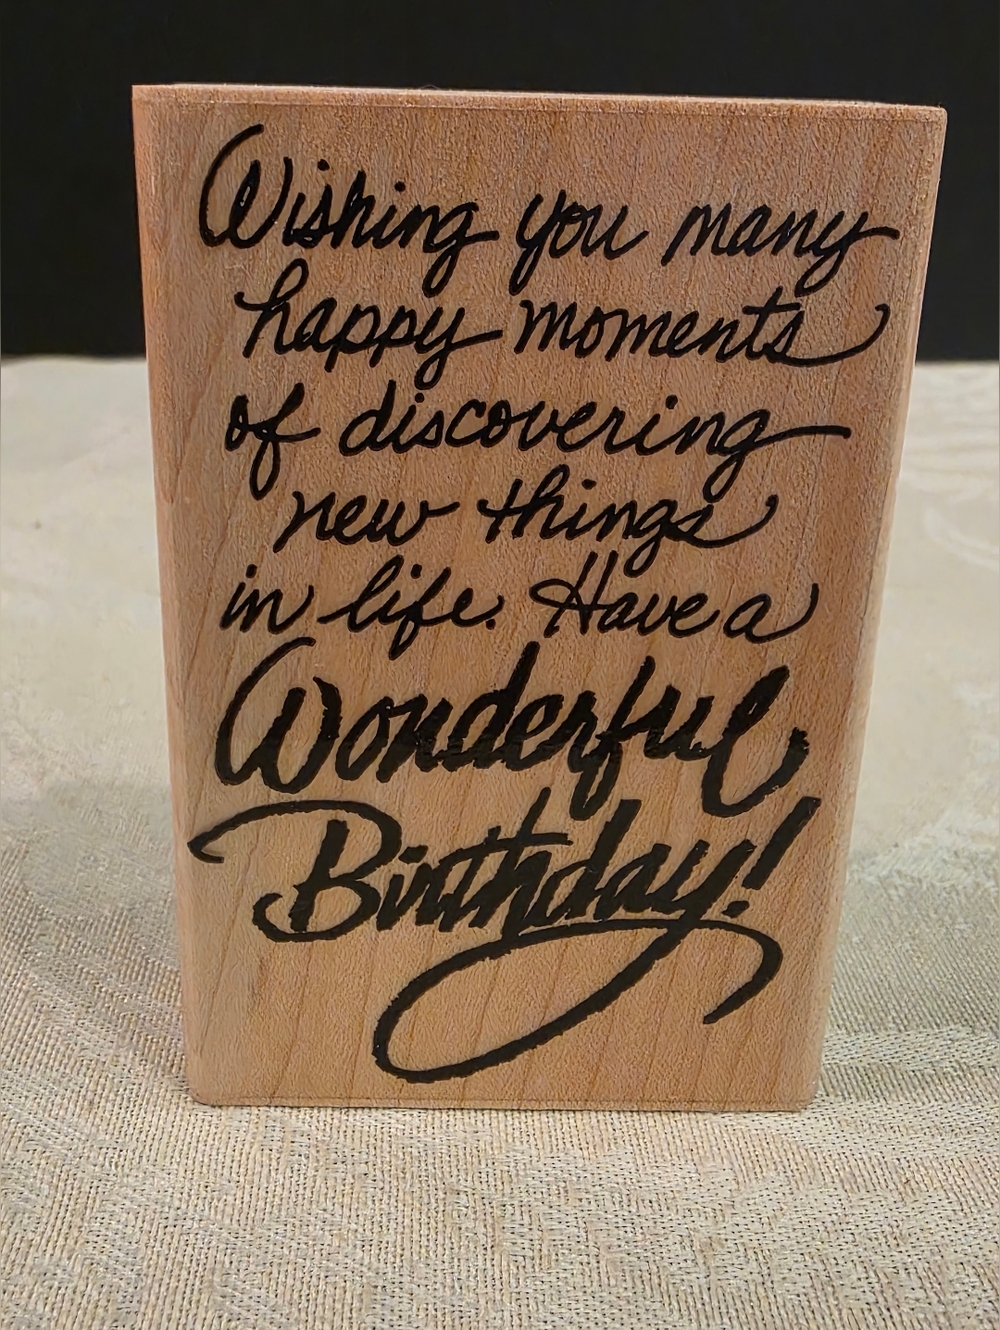 Wishing you many
happy moments
of discovering
new things
in life. Have a
Wonderful
Birthday!